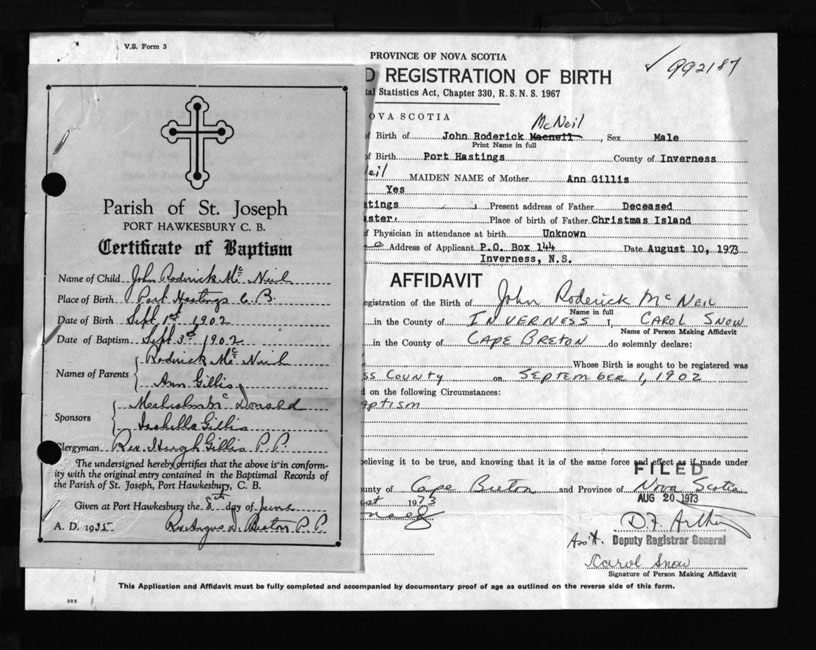 V.S. Form 3
PROVINCE OF NOVA SCOTIA
D REGISTRATION OF BIRTH
✓ 992187
tal Statistics Act, Chapter 330, R.S.N.S. 1967
OVA SCOTIA
McNeil
of Birth of John Roderick Macneil, Sex Male
Print Name in full
of Birth Port Hastings County of Inverness
eil MAIDEN NAME of Mother Ann Gillis
Yes
tings Present address of Father Deceased
aster. Place of birth of Father Christmas Island
f Physician in attendance at birth Unknown
e Address of Applicant P.O. Box 144 Date August 10, 1973
Inverness, N.S.
AFFIDAVIT
egistration of the Birth of John Roderick McNeil
Name in full
in the County of INVERNESS I, CAROL SNOW
Name of Person Making Affidavit
in the County of CAPE BRETON do solemnly declare:
Whose Birth is sought to be registered was
ss County on SEPTEMBER 1, 1902
d on the following Circumstances:
aptism
elieving it to be true, and knowing that it is of the same force and effect as if made under
FILED
unty of Cape Breton and Province of Nova Scotia
AUG 20 1973
Ass't. Deputy Registrar General
Carol Snow
Signature of Person Making Affidavit
This Application and Affidavit must be fully completed and accompanied by documentary proof of age as outlined on the reverse side of this form.
Parish of St. Joseph
PORT HAWKESBURY C. B.
Certificate of Baptism
Name of Child John Roderick Mc Neil
Place of Birth Port Hastings C. B.
Date of Birth Sept 1st 1902
Date of Baptism Sept 3rd 1902
Names of Parents Roderick Mc Neil
Ann Gillis
Sponsors Mc Donald
Isabella Gillis
Clergyman Rev. Hugh Gillis P. P.
The undersigned hereby certifies that the above is in conform-
ity with the original entry contained in the Baptismal Records of
the Parish of St. Joseph, Port Hawkesbury, C. B.
Given at Port Hawkesbury the 8th day of June
A. D. 1935 Rev. Angus D. Beaton P. P.